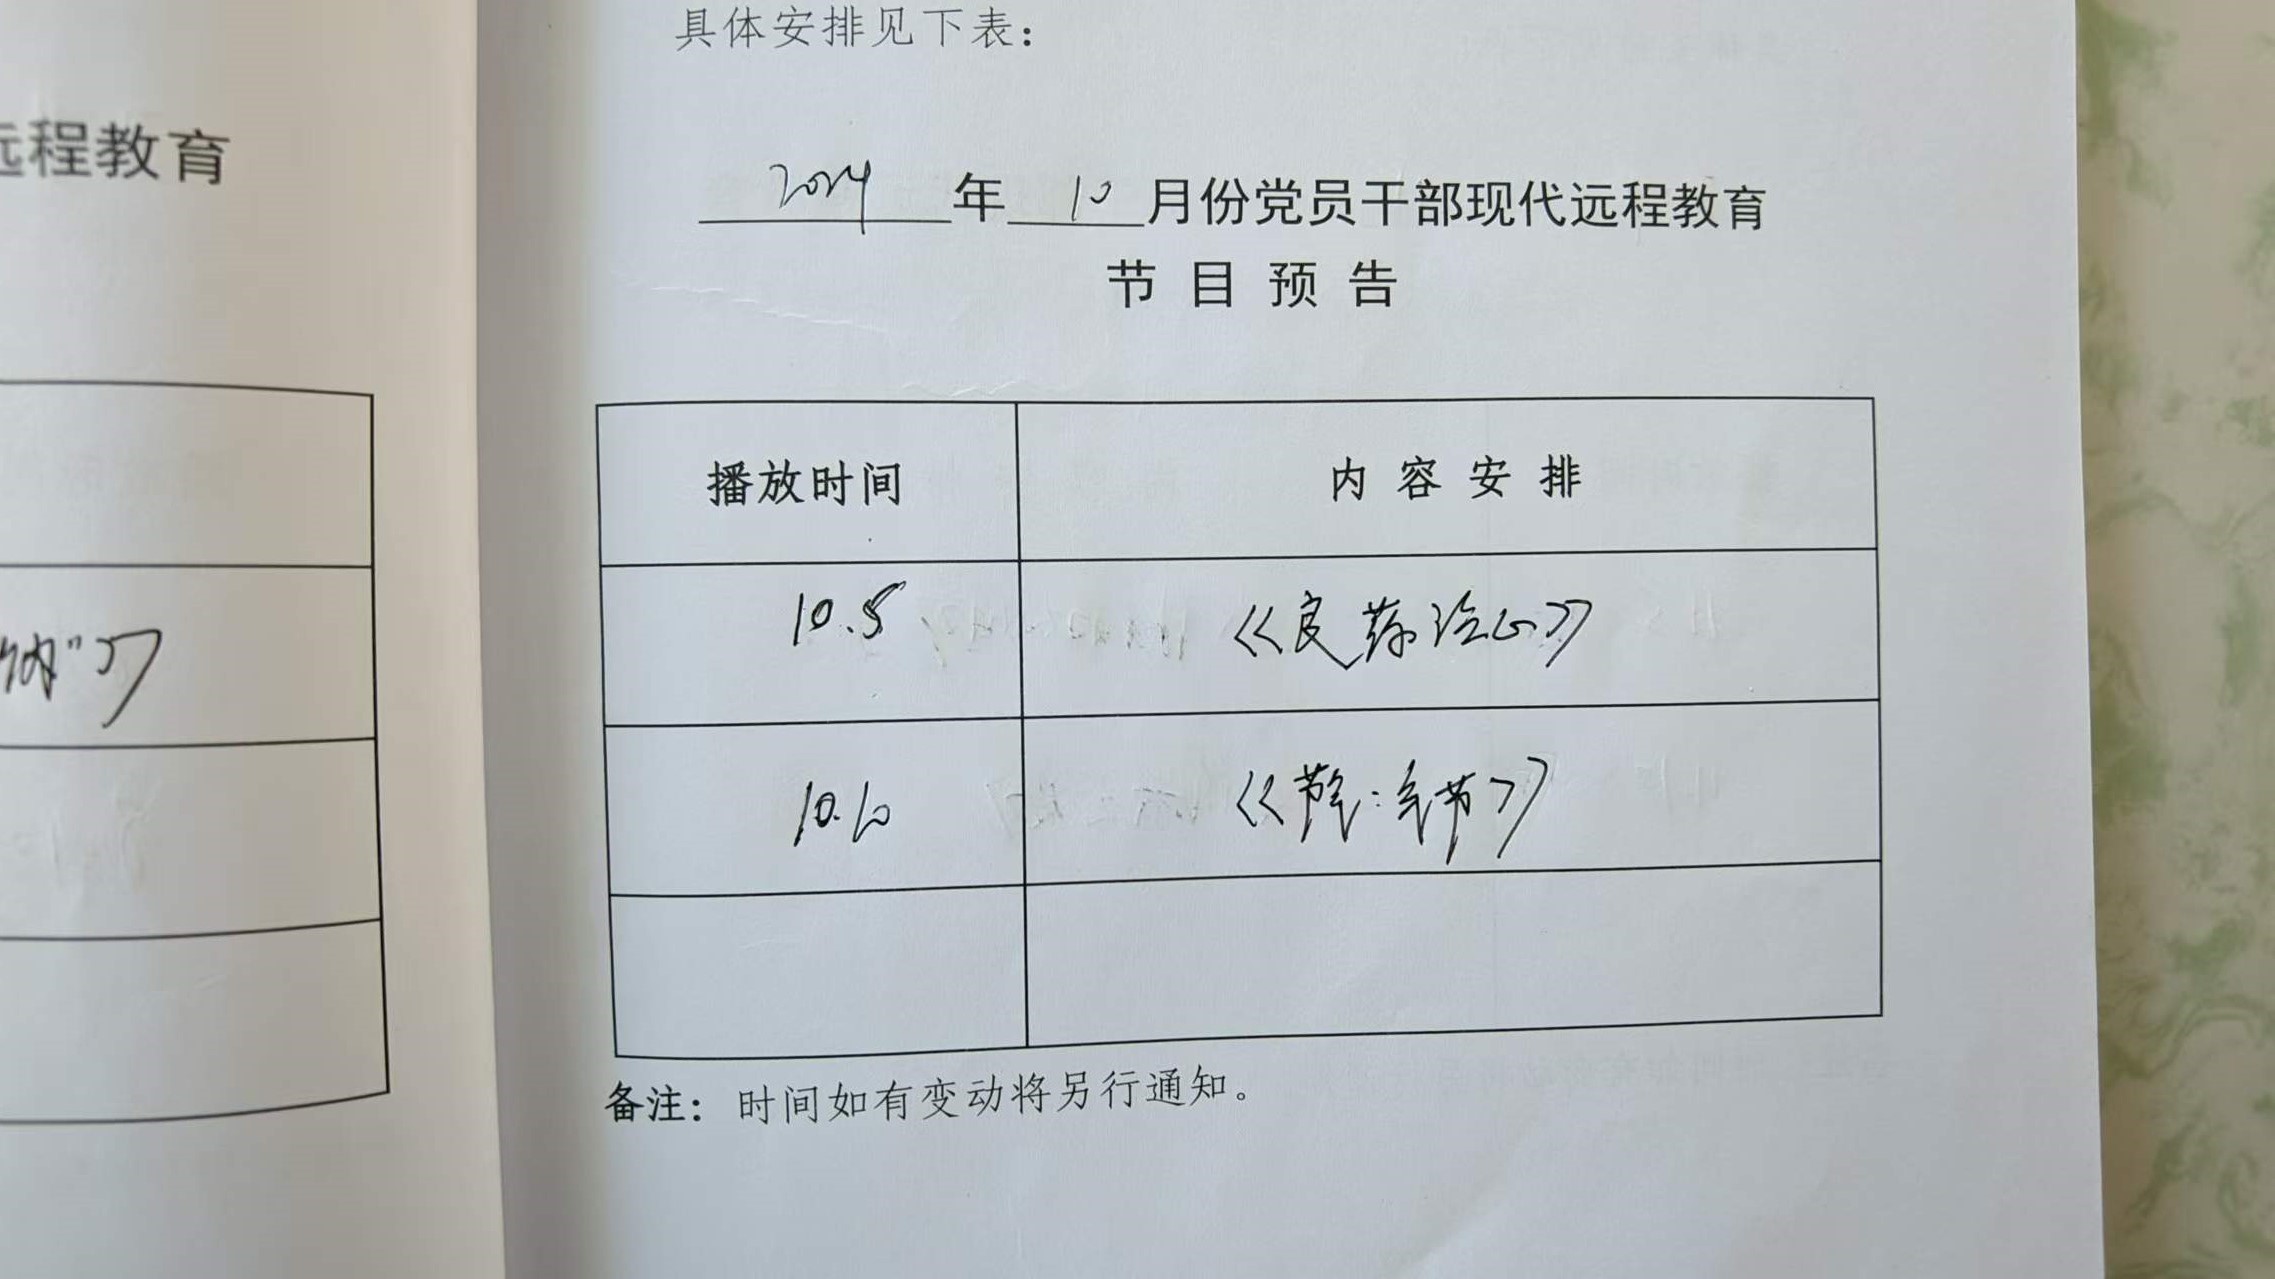 远程教育
纳"》
具体安排见下表：
2024年10月份党员干部现代远程教育
节目预告
播放时间 内容安排
10.5 《良药治心》
10.10 《节气：气节》
备注：时间如有变动将另行通知。